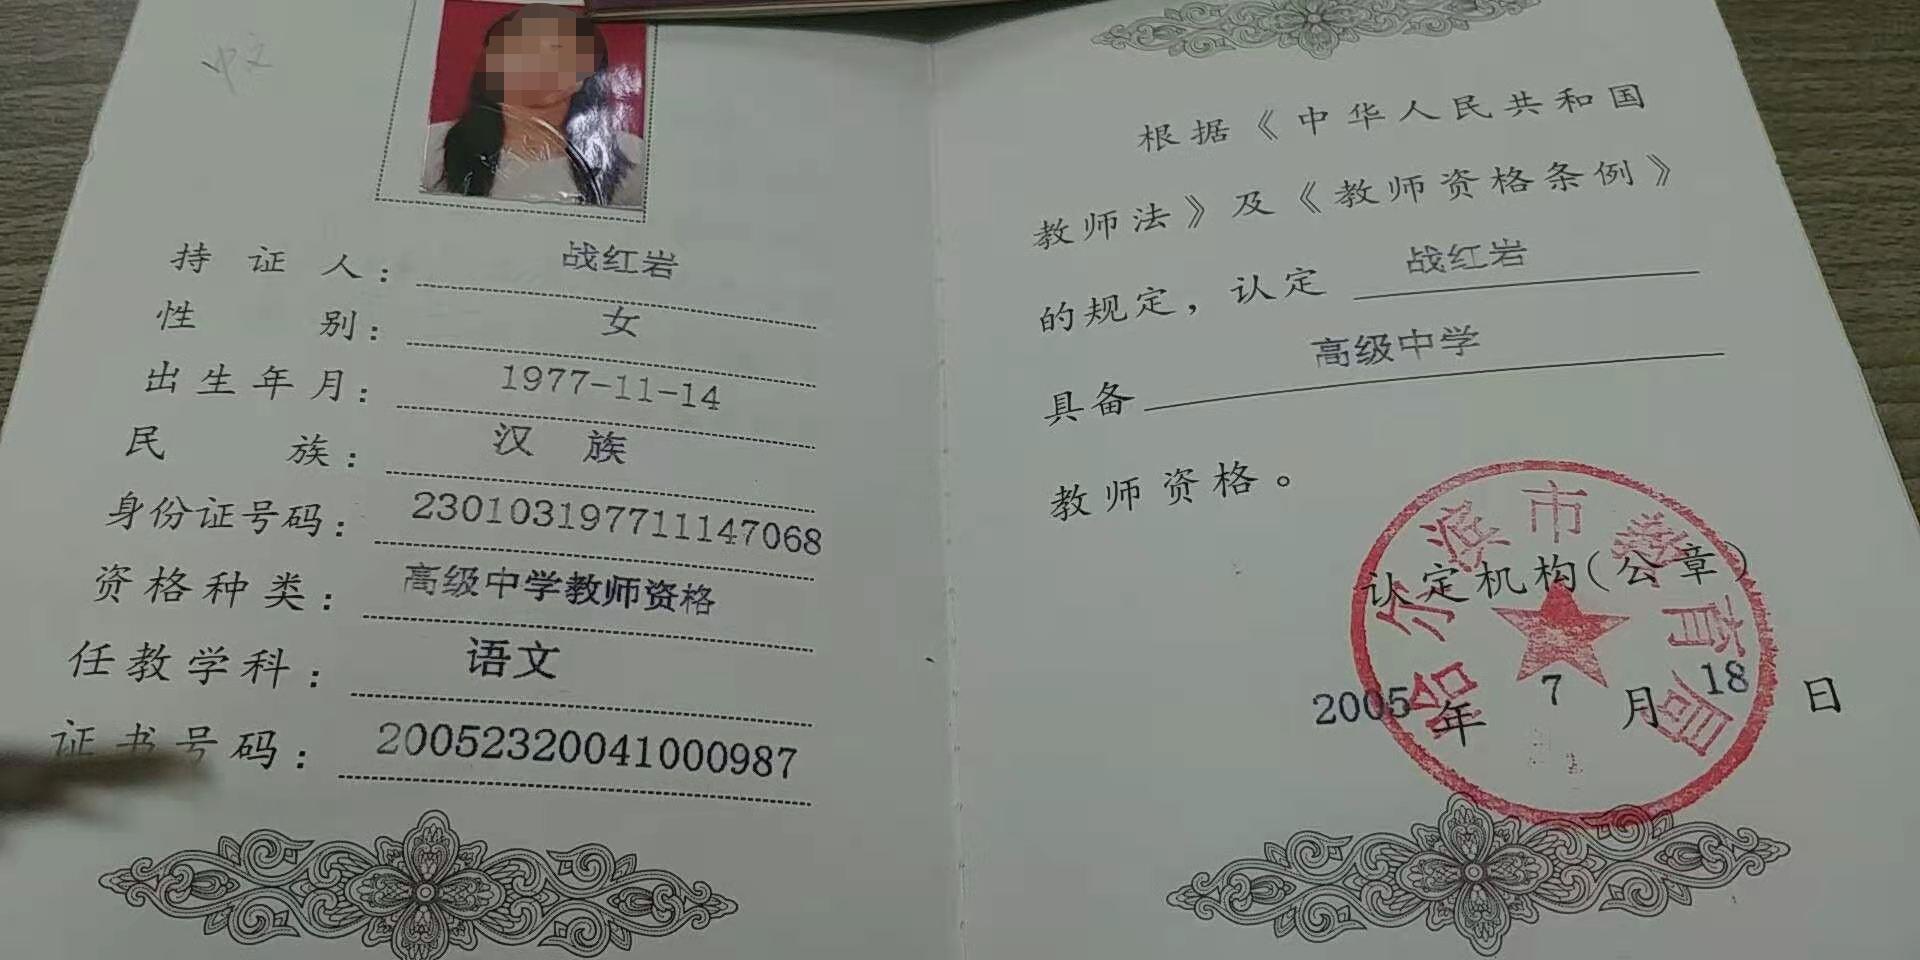 中文
持证人：战红岩
性别：女
出生年月：1977-11-14
民族：汉族
身份证号码：230103197711147068
资格种类：高级中学教师资格
任教学科：语文
证书号码：20052320041000987
根据《中华人民共和国
教师法》及《教师资格条例》
的规定，认定 战红岩
具备 高级中学
教师资格。
哈尔滨市教育局
认定机构（公章）
2005年7月18日